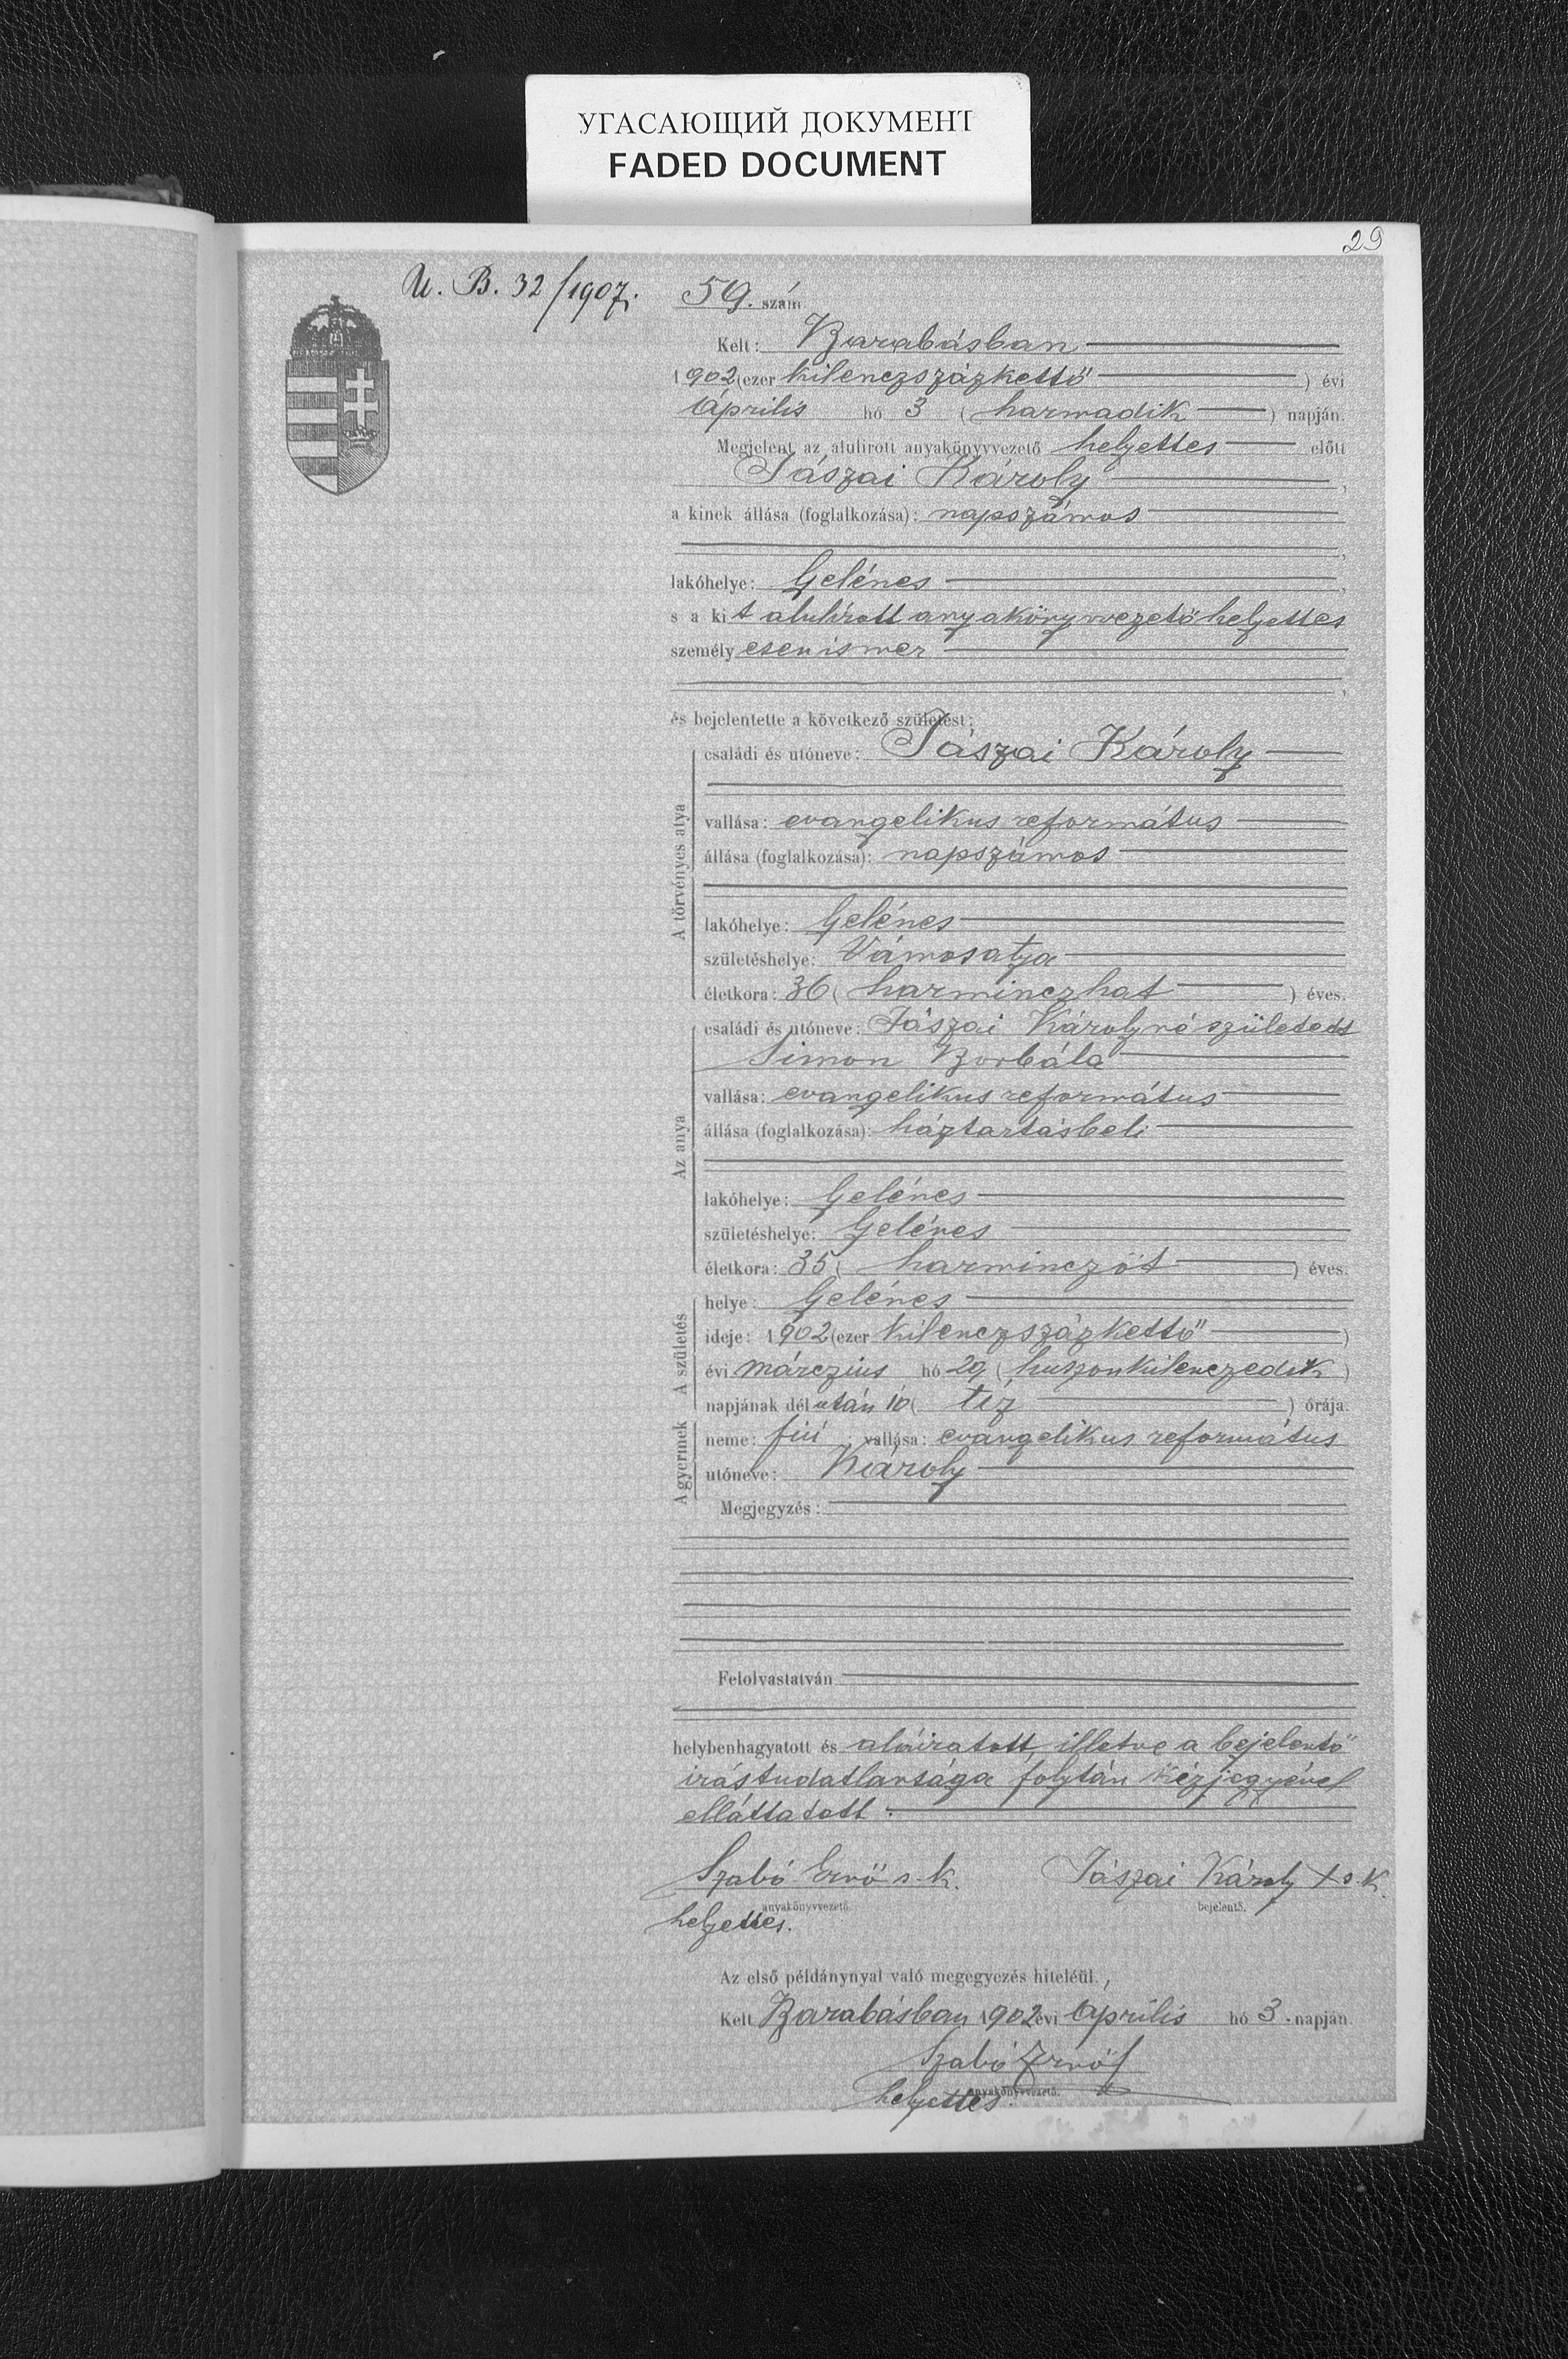 УГАСАЮЩИЙ ДОКУМЕНТ
FADED DOCUMENT
29
U. B. 32/1907.
59. szám.
Kelt: Barabásban
1902 (ezer kilenczszázkettő) évi
április hó 3 (harmadik) napján.
Megjelent az alulirott anyakönyvvezető helyettes előtt
Jászai Károly,
a kinek állása (foglalkozása): napszámos
lakóhelye: Gelénes
s a kit alulírott anyakönyvvezető helyettes
személyesen ismer
és bejelentette a következő születést:
A törvényes atya
családi és utóneve: Jászai Károly
vallása: evangelikus református
állása (foglalkozása): napszámos
lakóhelye: Gelénes
születéshelye: Vámosatya
életkora: 36 (harminczhat) éves.
Az anya
családi és utóneve: Jászai Károlyné született
Simon Borbála
vallása: evangelikus református
állása (foglalkozása): háztartásbeli
lakóhelye: Gelénes
születéshelye: Gelénes
életkora: 35 (harminczöt) éves.
A születés
helye: Gelénes
ideje: 1902 (ezer kilenczszázkettő)
évi márczius hó 29 (huszonkilenczedik)
napjának délután 10 (tíz) órája.
A gyermek
neme: fiú; vallása: evangelikus református
utóneve: Károly
Megjegyzés:
Felolvastatván
helybenhagyatott és aláiratott, illetve a bejelentő
irástudatlansága folytán kézjegyével
elláttatott.
Szabó Ernő s. k. Jászai Károly X s. k.
anyakönyvvezető. bejelentő.
helyettes.
Az első példánynyal való megegyezés hiteléül.,
Kelt Barabásban 1902 évi április hó 3. napján.
Szabó Ernő
anyakönyvvezető.
helyettes.